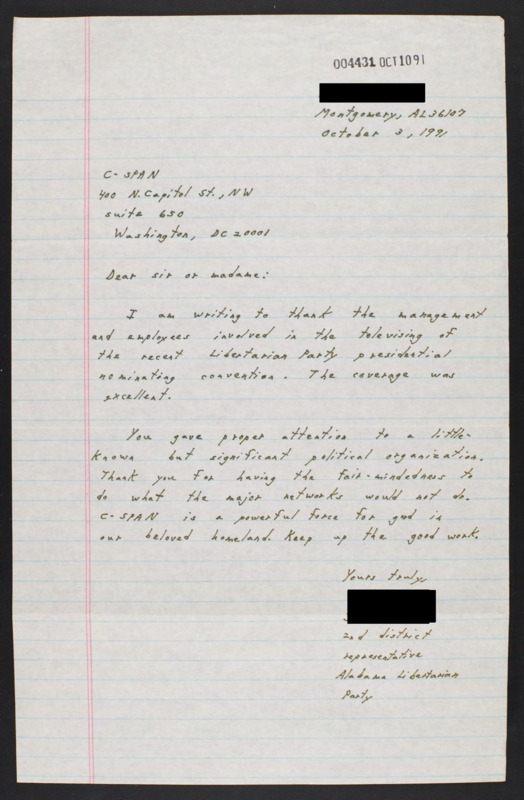 004431 OCT 10 91
Montgomery, AL 36107
October 3, 1991
C-SPAN
400 N. Capitol St., NW
suite 650
Washington, DC 20001
Dear sir or madame:
I am writing to thank the management
and employees involved in the televising of
the recent Libertarian Party presidential
nominating convention. The coverage was
excellent.
You gave proper attention to a little-
known but significant political organization.
Thank you for having the fair-mindedness to
do what the major networks would not do.
C-SPAN is a powerful force for good in
our beloved homeland. Keep up the good work.
Yours truly,
2nd district
representative
Alabama Libertarian
Party